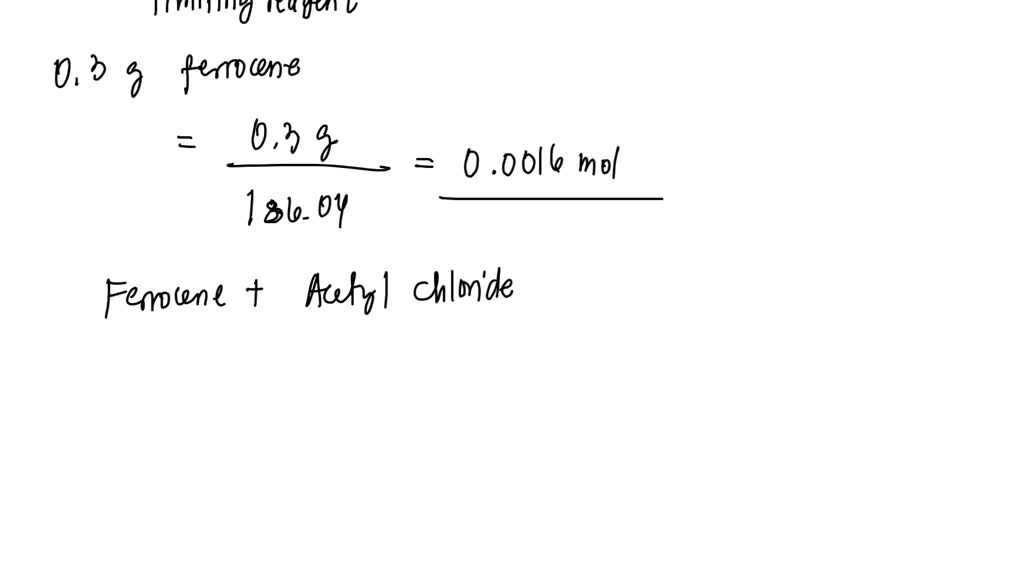 limiting reagent
0.3 g ferrocene
= 0.3 g / 186.04 = 0.0016 mol
Ferrocene + Acetyl chloride